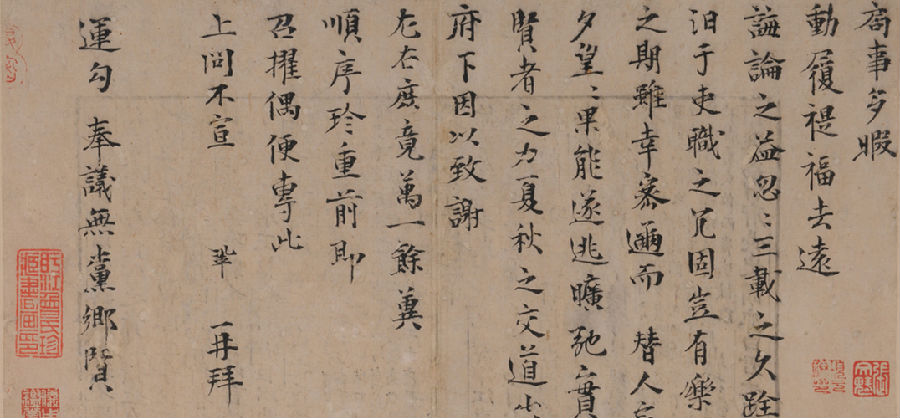 局事多暇
動履禔福去遠
誨論之益忽〻三載之久跧
汨于吏職之冗固豈有樂
之期雖幸密邇而替人
夕望〻果能遂逃曠弛實
賢者之力夏秋之交道出
府下因以致謝
左右庶竟萬一餘冀
順序珍重前即
召擢偶便專此
上問不宣 鞏 再拜
運勾 奉議無黨鄉賢